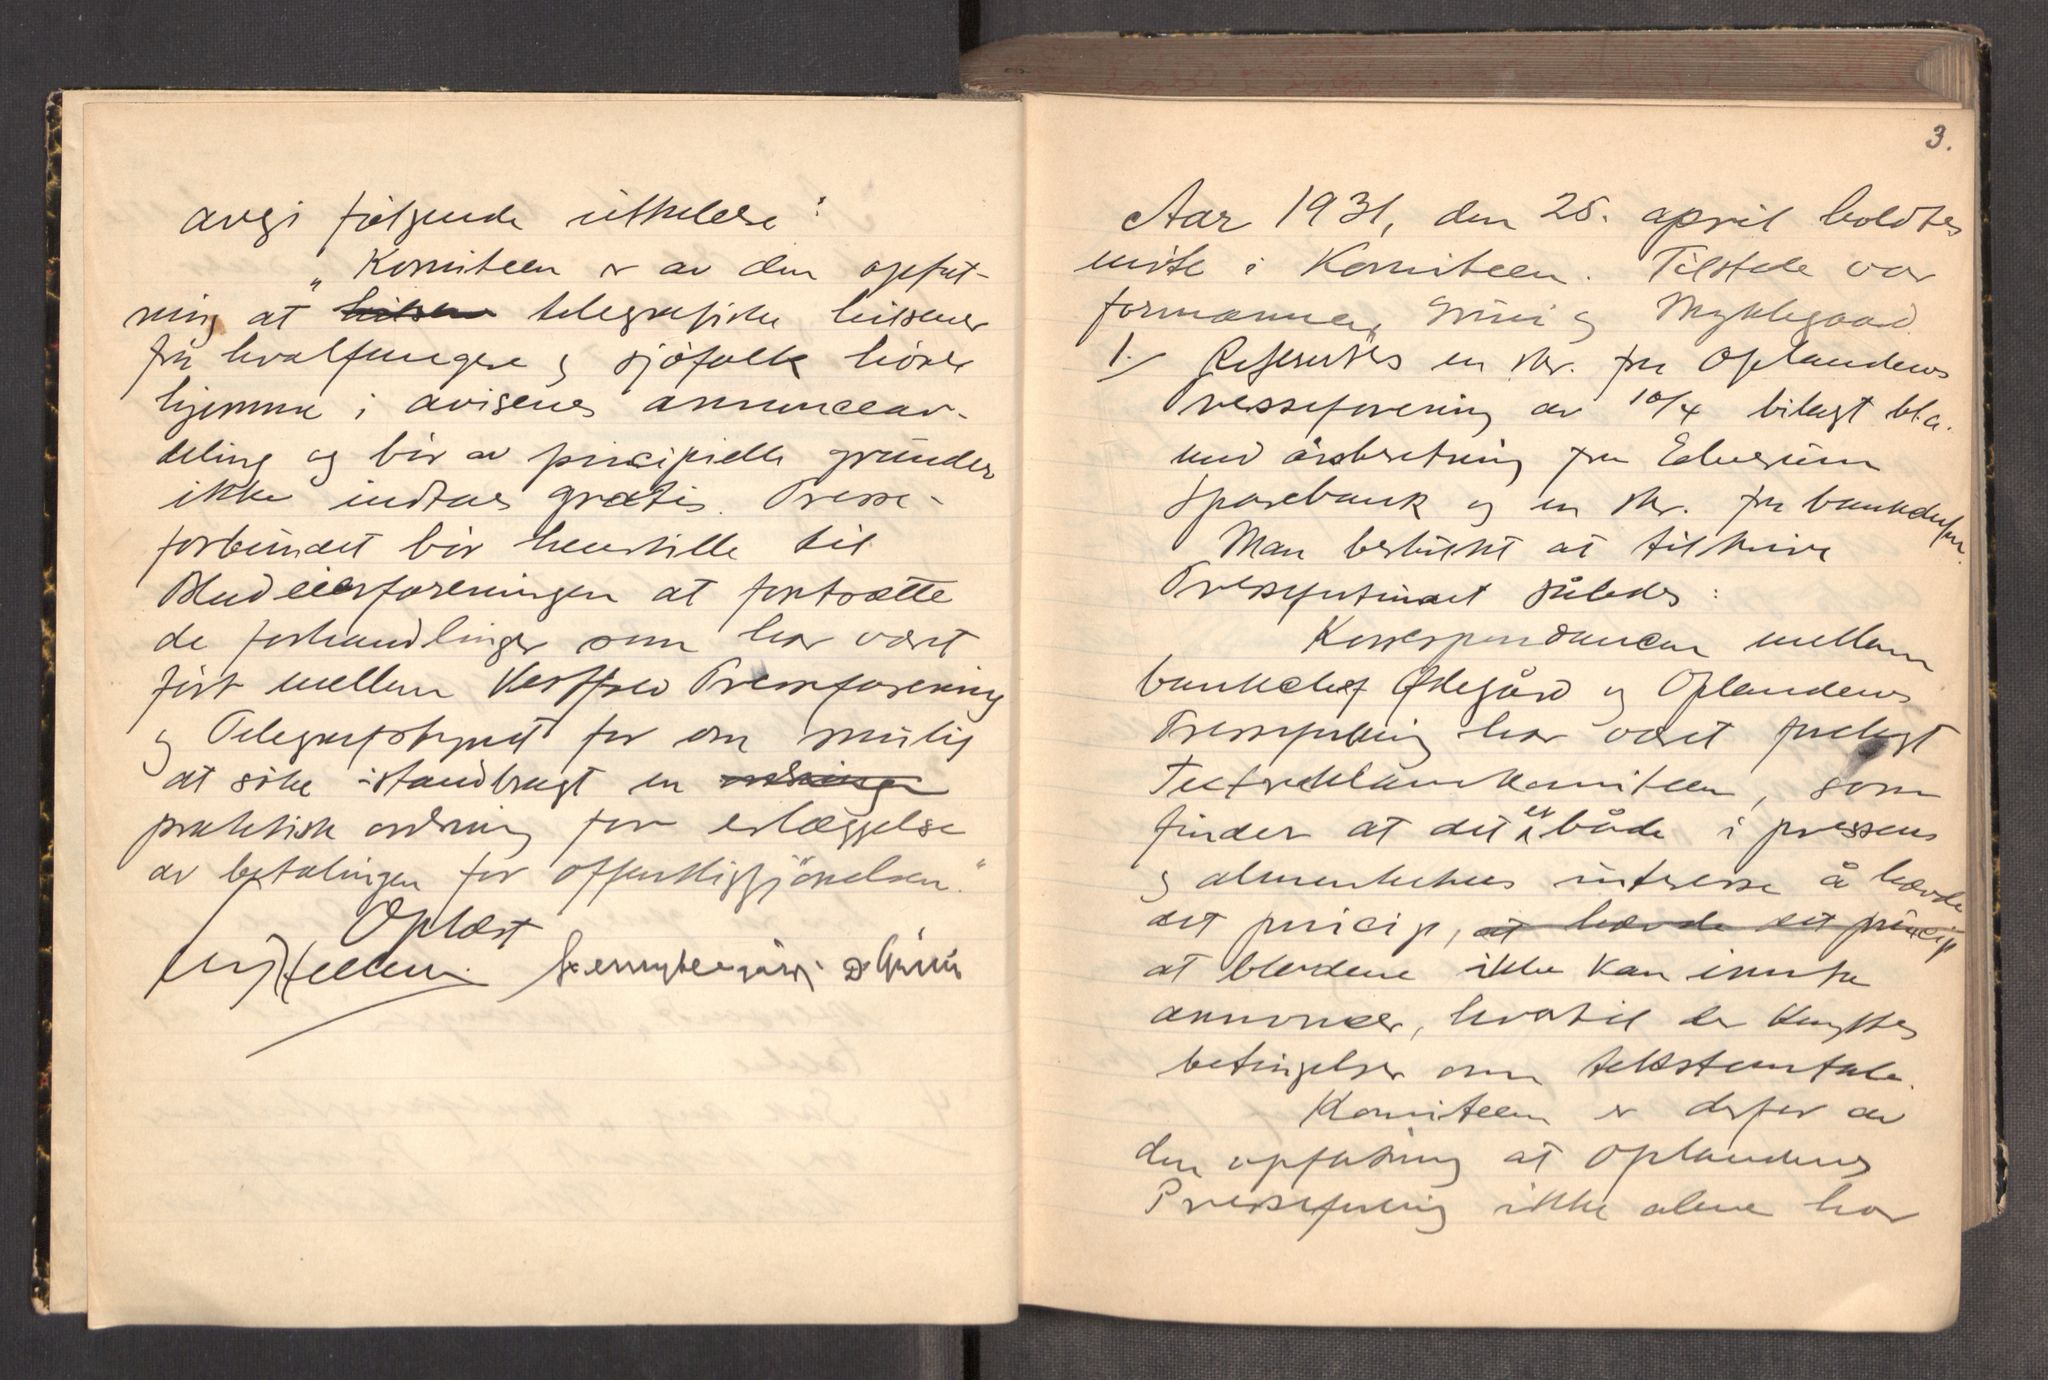 avgi følgende uttalelse:
"Komiteen er av den opfat-
ning at hilsen telegrafiske hilsener
fra hvalfangere og sjøfolk hører
hjemme i avisenes annonceav-
deling og bør av principielle grunder
ikke indtas gratis. Presse-
forbundet bør henstille til
Bladeierforeningen at fortsætte
de forhandlinger som har vært
ført mellem Vestfold Presseforening
og Telegrafstyret for om mulig
at søke istandbragt en ordningen
praktisk ordning for erlæggelse
av betalingen for offentliggjørelsen."
Oplæst
3.
Aar 1931, den 25. april holdtes
møte i Komiteen. Tilstede var
formannen, Grüni og Myklegaard.
1./ Refertes en skr. fra Oplandenes
Presseforening av 10/4 bilagt bl.a.
med årsberetning fra Elverum
Sparebank og en skr. fra bankchefen.
Man besluttet at tilskrive
Presseforbundet således:
Korrespondancen mellem
bankchef Ødegård og Oplandenes
Presseforening har været forelagt
Textreklamekomiteen, som
finder at det er både i pressens
og almenhetens interesse å hævde
det princip, at hævde det princip
at bladene ikke kan innta
annoncer, hvortil der knyttes
betingelser om tekstomtale.
Komiteen er derfor av
den opfatning at Oplandenes
Presseforening ikke alene har